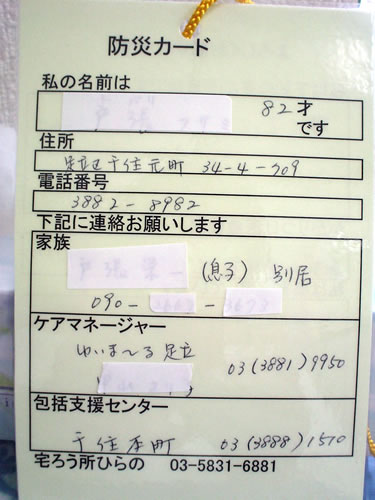 防災カード
私の名前は
82才
です
住所
足立区千住元町 34-4-709
電話番号
3882-8982
下記に連絡お願いします
家族
(息子) 別居
090- -
ケアマネージャー
ゆいま〜る足立
03(3881)9950
包括支援センター
千住本町 03(3888)1510
宅ろう所ひらの 03-5831-6881